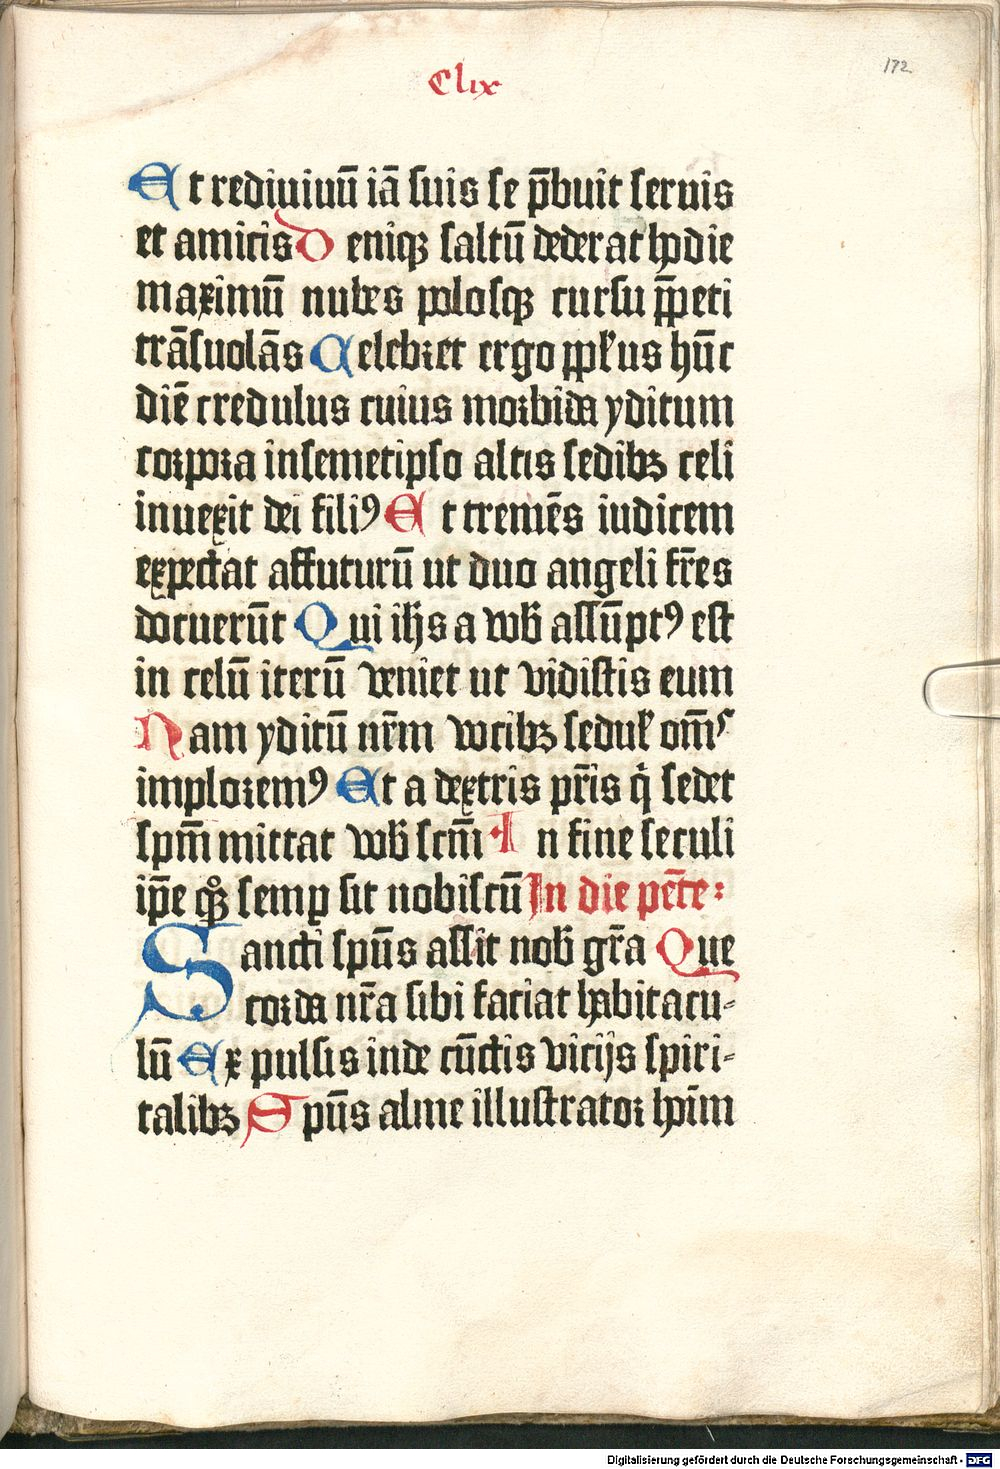 Clix
172
Et rediuiuū iā suis se p̄buit seruis
et amicis Deniqꝫ saltū dederat hodie
maximū nubes polosqꝫ cursu p̄peti
trāsuolās Celebret ergo ppl̓us hūc
diē credulus cuius morbida yditum
corpora insemetipso altis sedibꝫ celi
inuexit dei filiꝰ Et tremēs iudicem
expectat affuturū ut duo angeli fr̄es
docuerūt Qui ihs a vob̄ assūptꝰ est
in celū iterū veniet ut vidistis eum
Nam yditū nr̄m vocibꝫ sedul̓ om̄s
imploremꝰ Et a dextris pr̄is q̇ sedet
spm̄ mittat vob̄ scm̄ In fine seculi
ip̄e qꝫ̊ semꝑ sit nobiscū In die pēte:
Sancti spūs assit nob̄ gr̄a Que
corda nr̄a sibi faciat habitacu-
lū Expulsis inde cūctis vicijs spiri-
talibꝫ Spūs alme illustrator hoīm
Digitalisierung gefördert durch die Deutsche Forschungsgemeinschaft - DFG